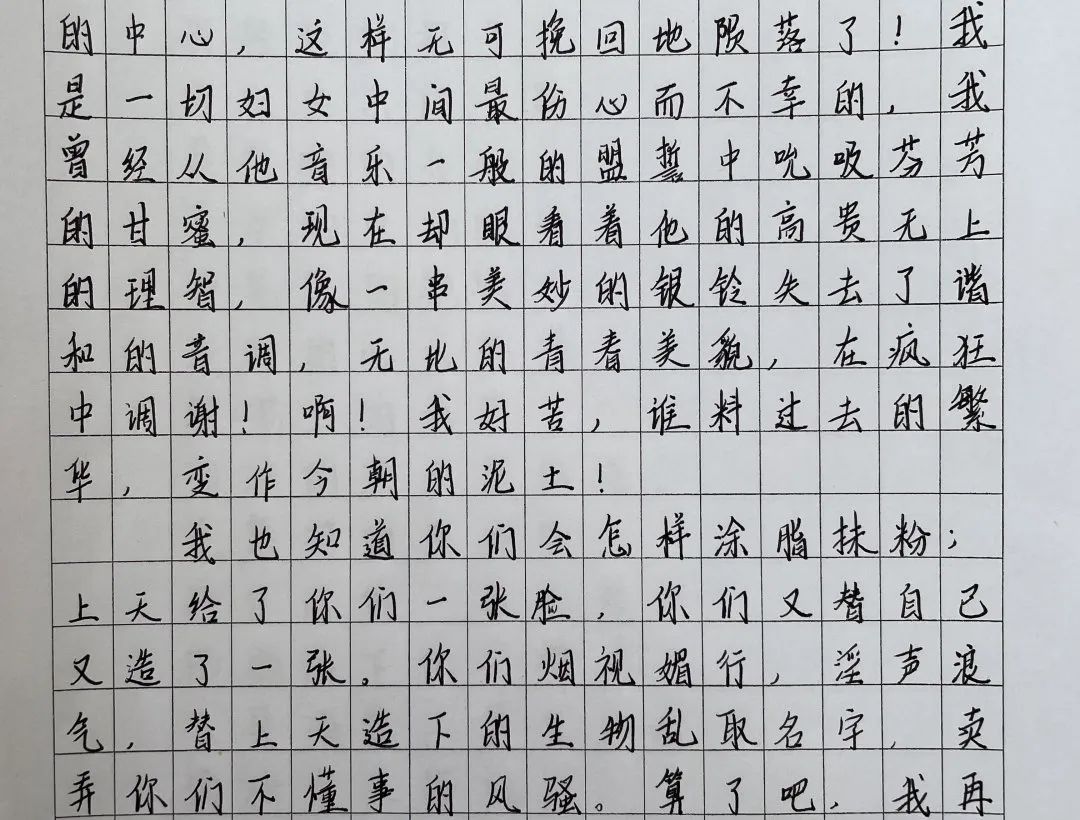 的中心，这样无可挽回地陨落了！我
是一切妇女中间最伤心而不幸的，我
曾经从他音乐一般的盟誓中吮吸芬芳
的甘蜜，现在却眼看着他的高贵无上
的理智，像一串美妙的银铃失去了谐
和的音调，无比的青春美貌，在疯狂
中凋谢！啊！我好苦，谁料过去的繁
华，变作今朝的泥土！
我也知道你们会怎样涂脂抹粉；
上天给了你们一张脸，你们又替自己
又造了一张。你们烟视媚行，淫声浪
气，替上天造下的生物乱取名字，卖
弄你们不懂事的风骚。算了吧，我再